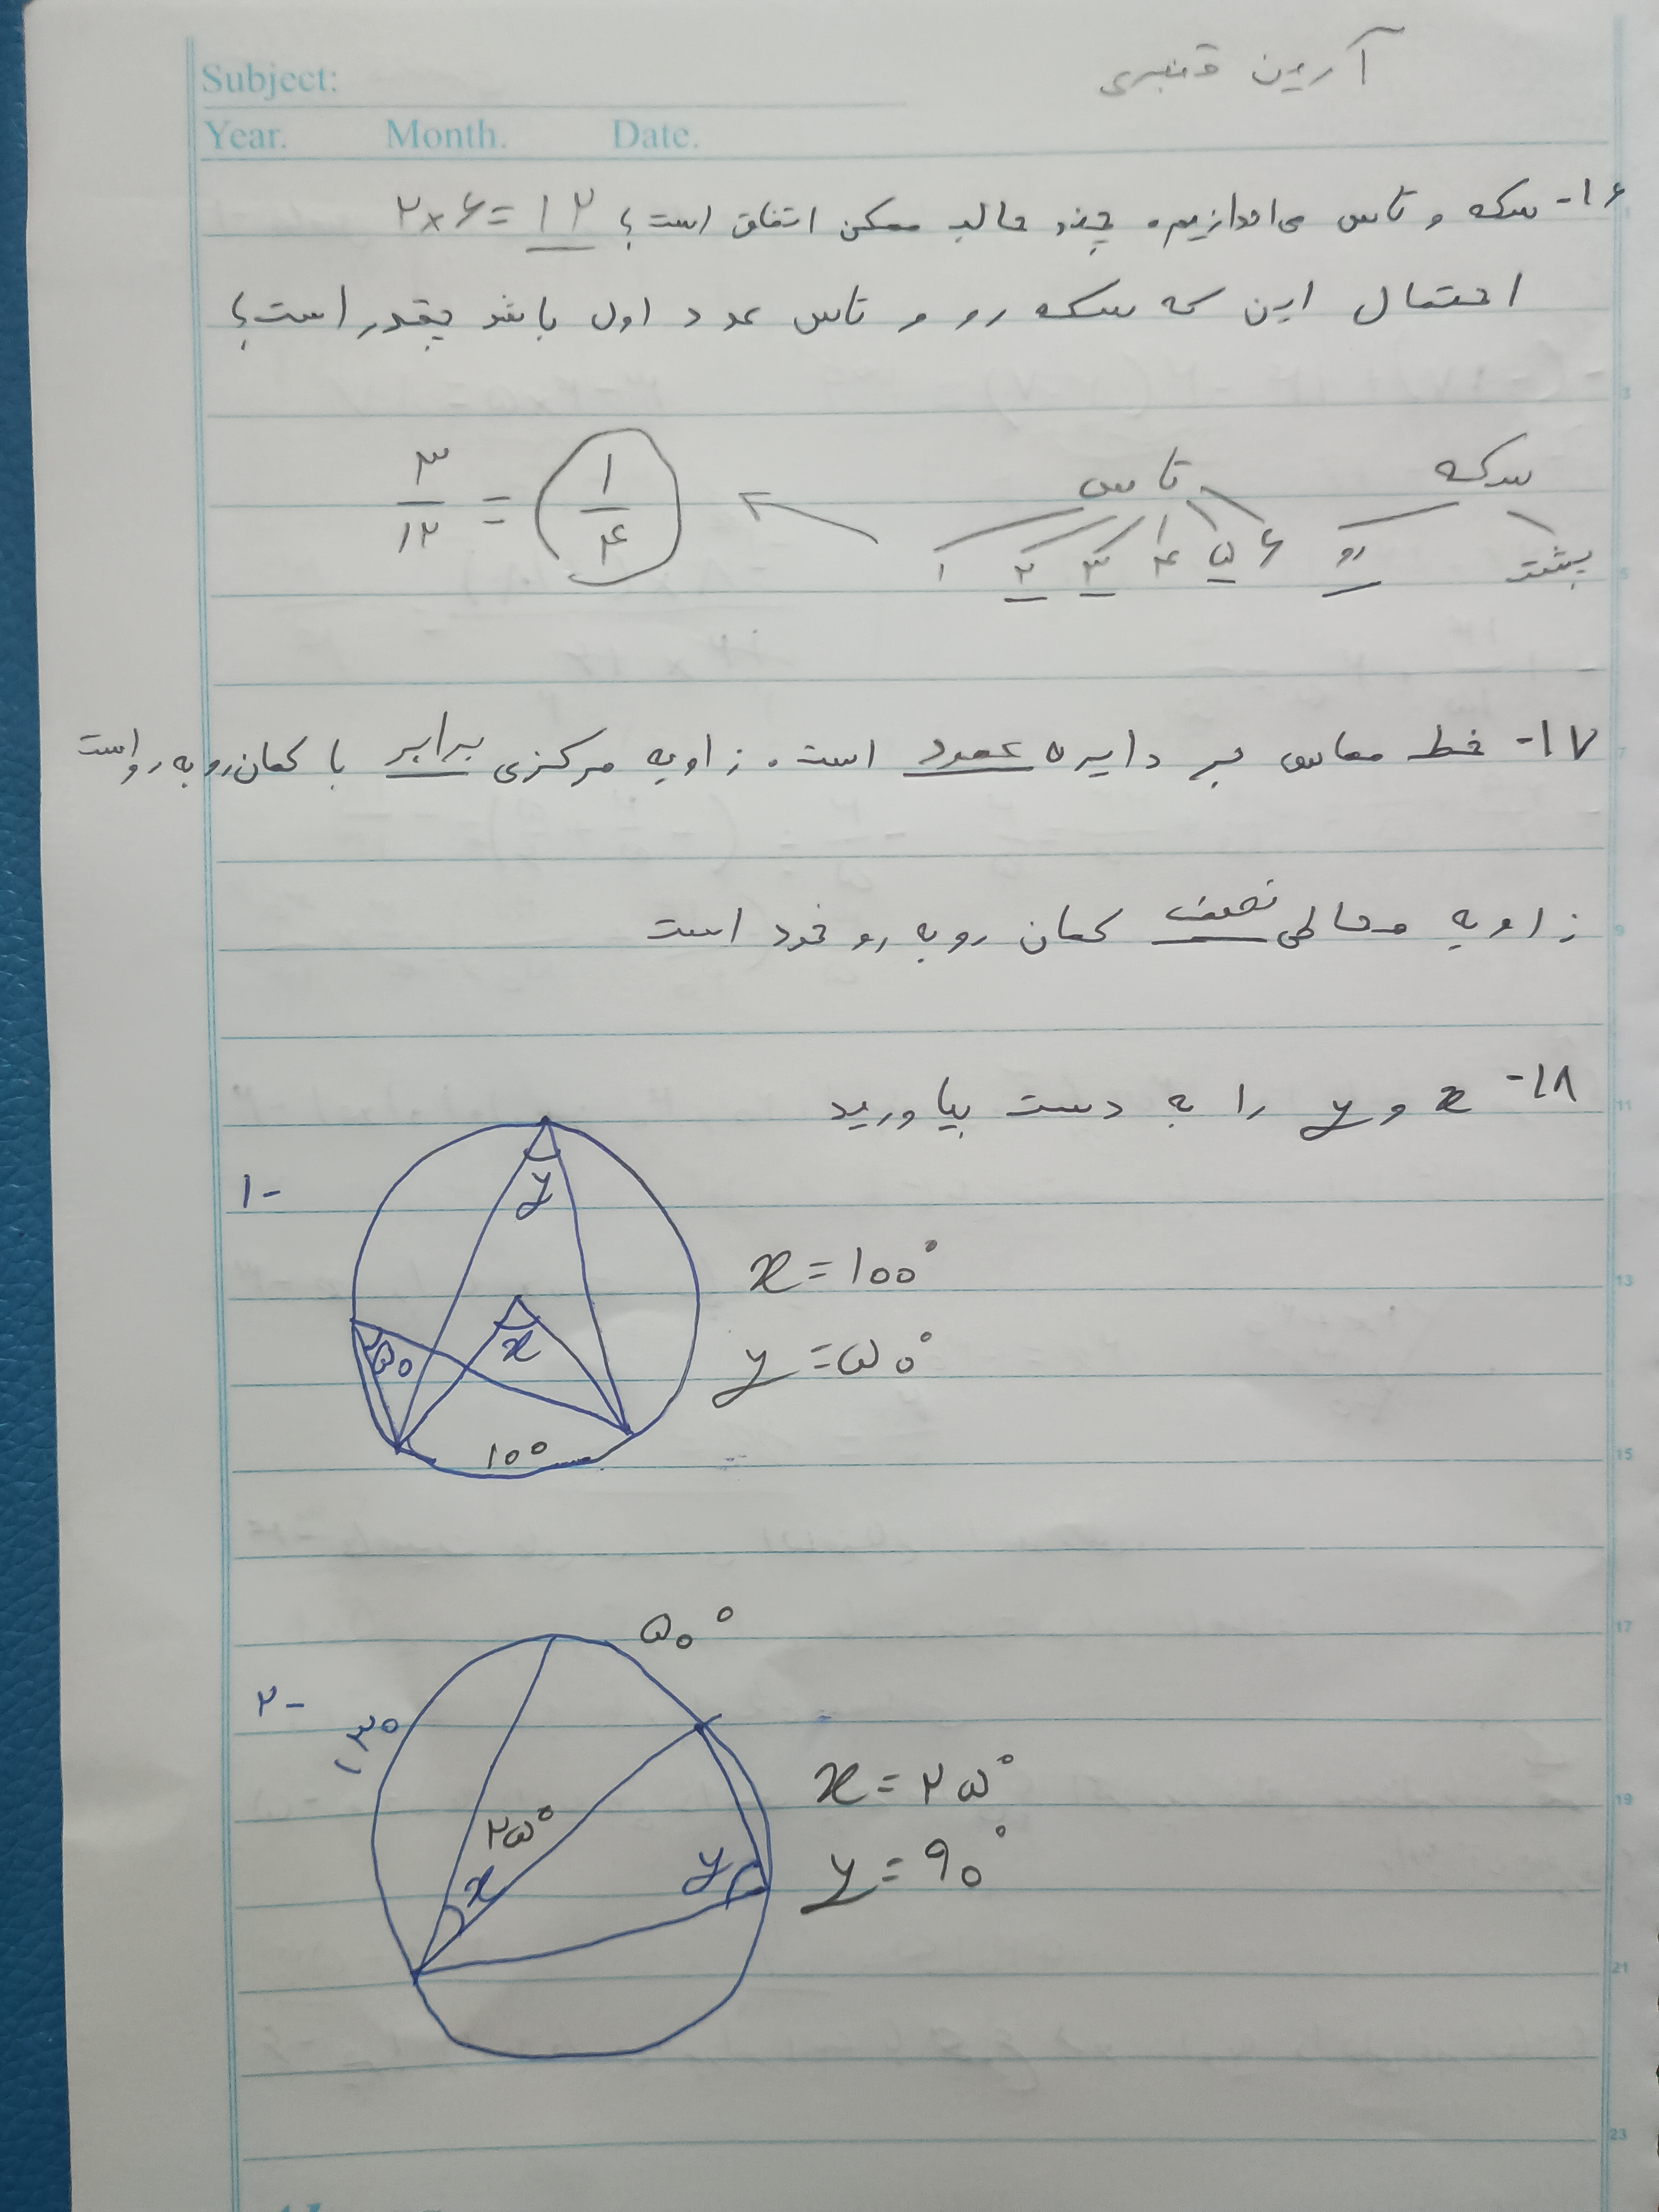 آرین قنبری
Subject:
Year. Month. Date.
۱۶- سکه و تاس می‌اندازیم. چند حالت ممکن اتفاق است؟ ۲×۶=۱۲
احتمال این که سکه رو و تاس عدد اول باشد چقدر است؟
سکه
پشت رو
تاس
۱ ۲ ۳ ۴ ۵ ۶
۳/۱۲ = ۱/۴
۱۷- خط مماس بر دایره عمود است. زاویه مرکزی برابر با کمان روبه رو است
زاویه محاطی نصف کمان روبه رو خود است
۱۸- x و y را به دست بیاورید
۱-
y
x
۵۰
۱۰۰
x=۱۰۰°
y=۵۰°
۲-
۵۰°
۱۳۰
۲۵°
x
y
x=۲۵°
y=۹۰°